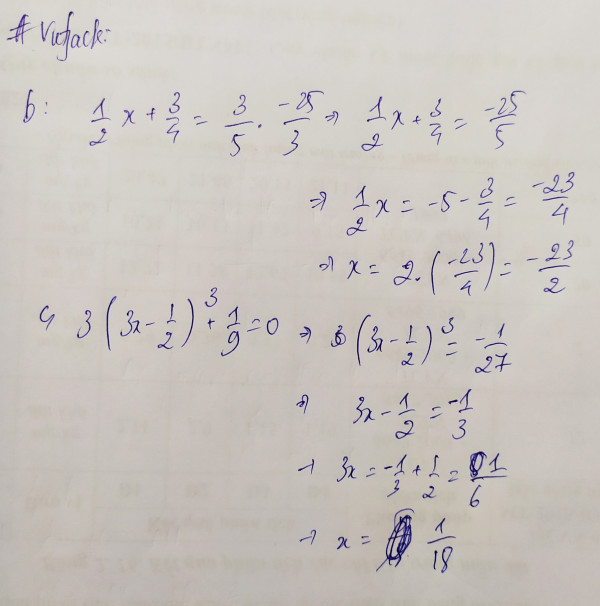 # Vufack:
b: 1/2 x + 3/4 = 3/5 . -25/3 => 1/2 x + 3/4 = -25/5
=> 1/2 x = -5 - 3/4 = -23/4
=> x = 2. (-23/4) = -23/2
3 (3x - 1/2)^3 + 1/9 = 0 => (3x - 1/2)^3 = -1/27
=> 3x - 1/2 = -1/3
→ 3x = -1/3 + 1/2 = 1/6
→ x = 1/18